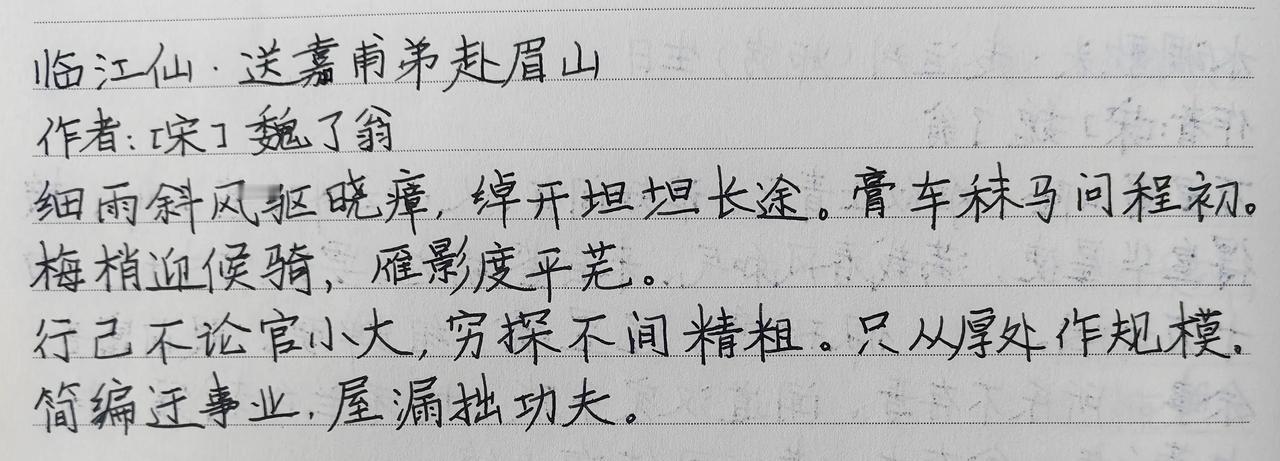 临江仙·送嘉甫弟赴眉山
作者:[宋]魏了翁
细雨斜风驱晓瘴,绰开坦坦长途。膏车秣马问程初。
梅梢迎候骑,雁影度平芜。
行己不论官小大,穷探不间精粗。只从厚处作规模。
简编迂事业,屋漏拙功夫。